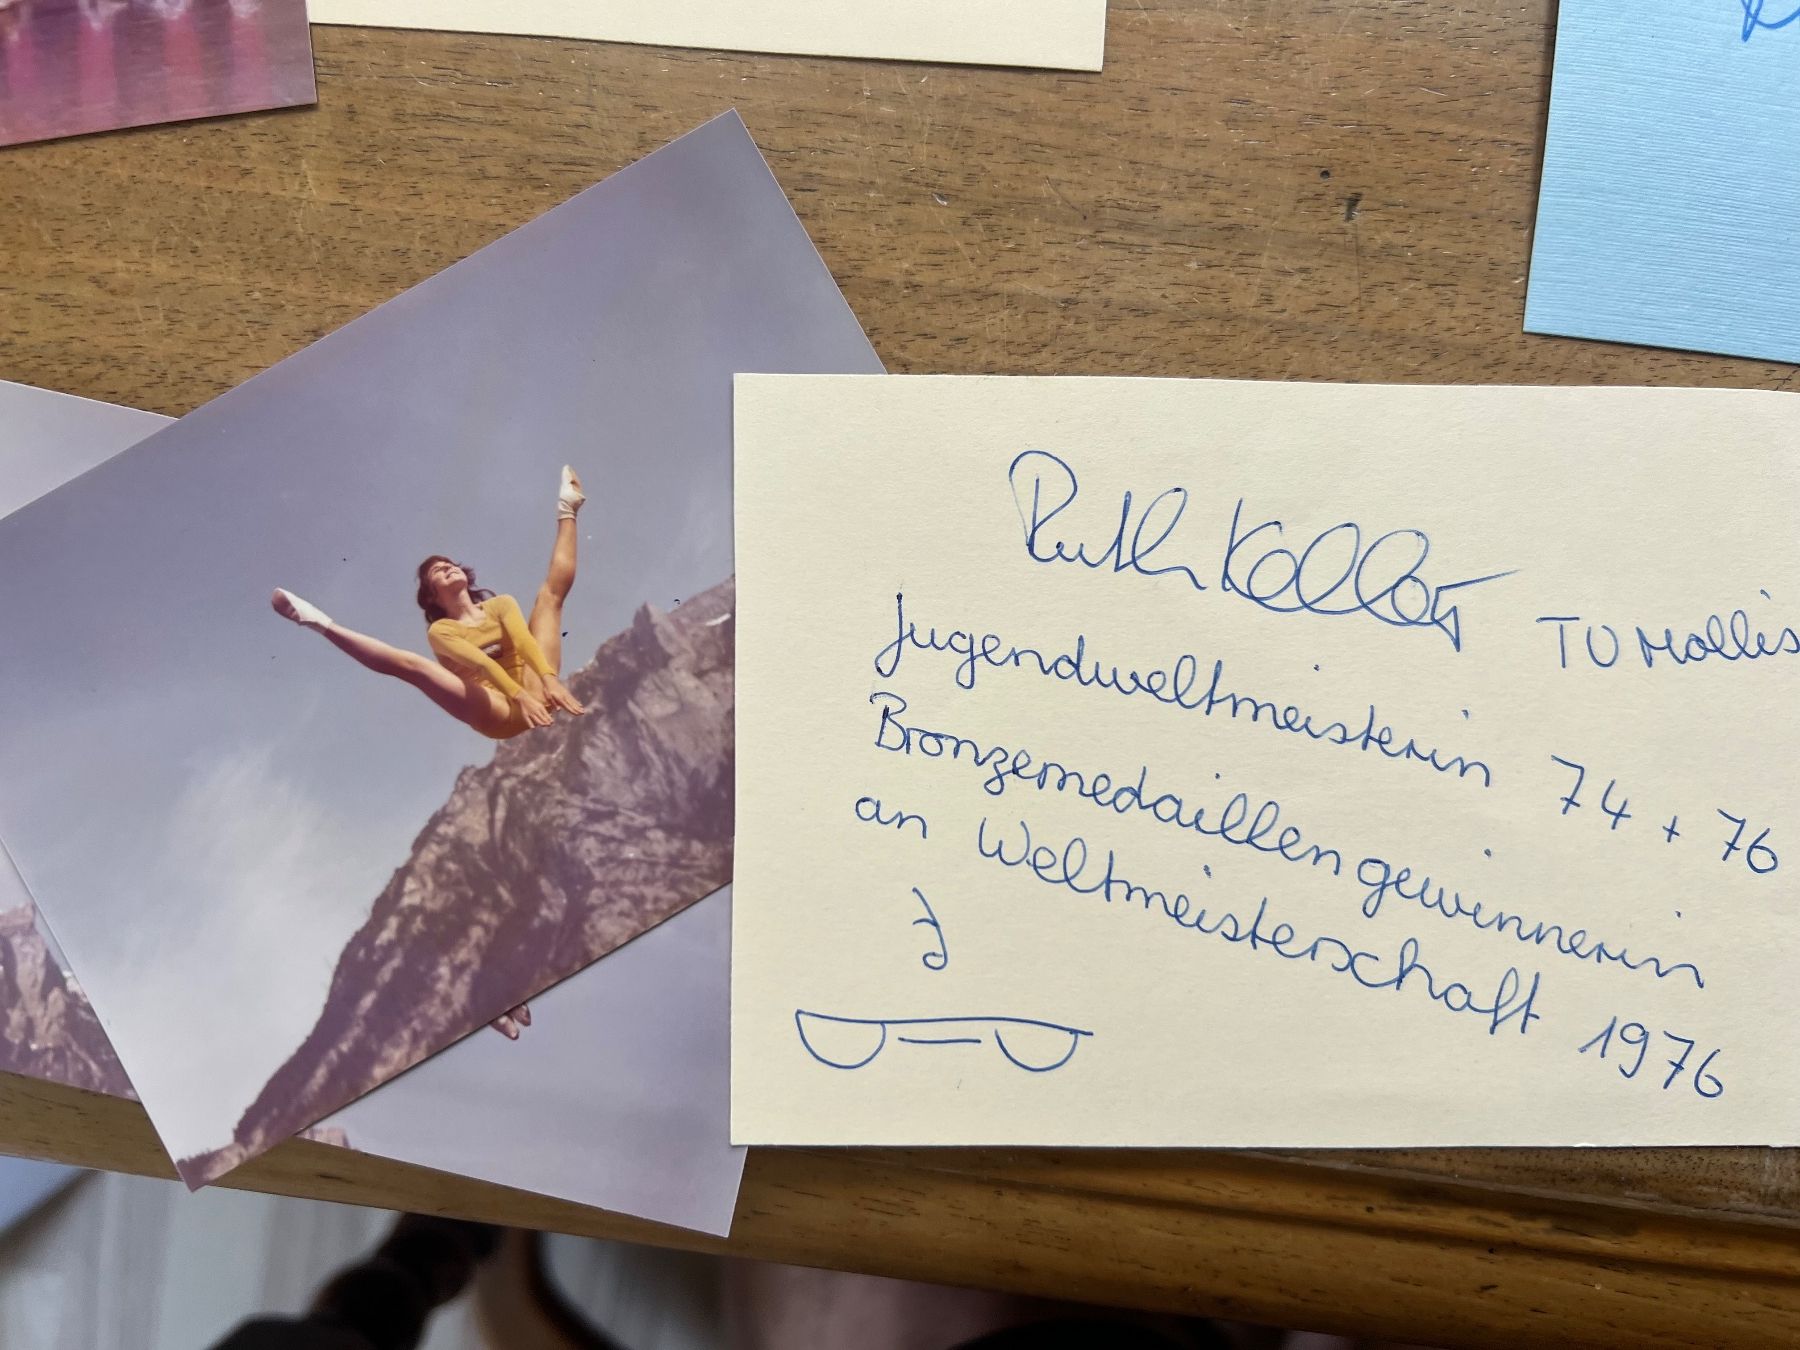 Ruth Keller TV Mollis
Jugendweltmeisterin 74 + 76
Bronzemedaillengewinnerin
an Weltmeisterschaft 1976